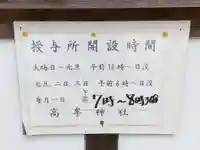 授与所開設時間
大晦日〜元旦 午前10時〜日没
元旦、二日、三日 午前6時〜日没
毎月一日 7時〜8時頃
高峯神社